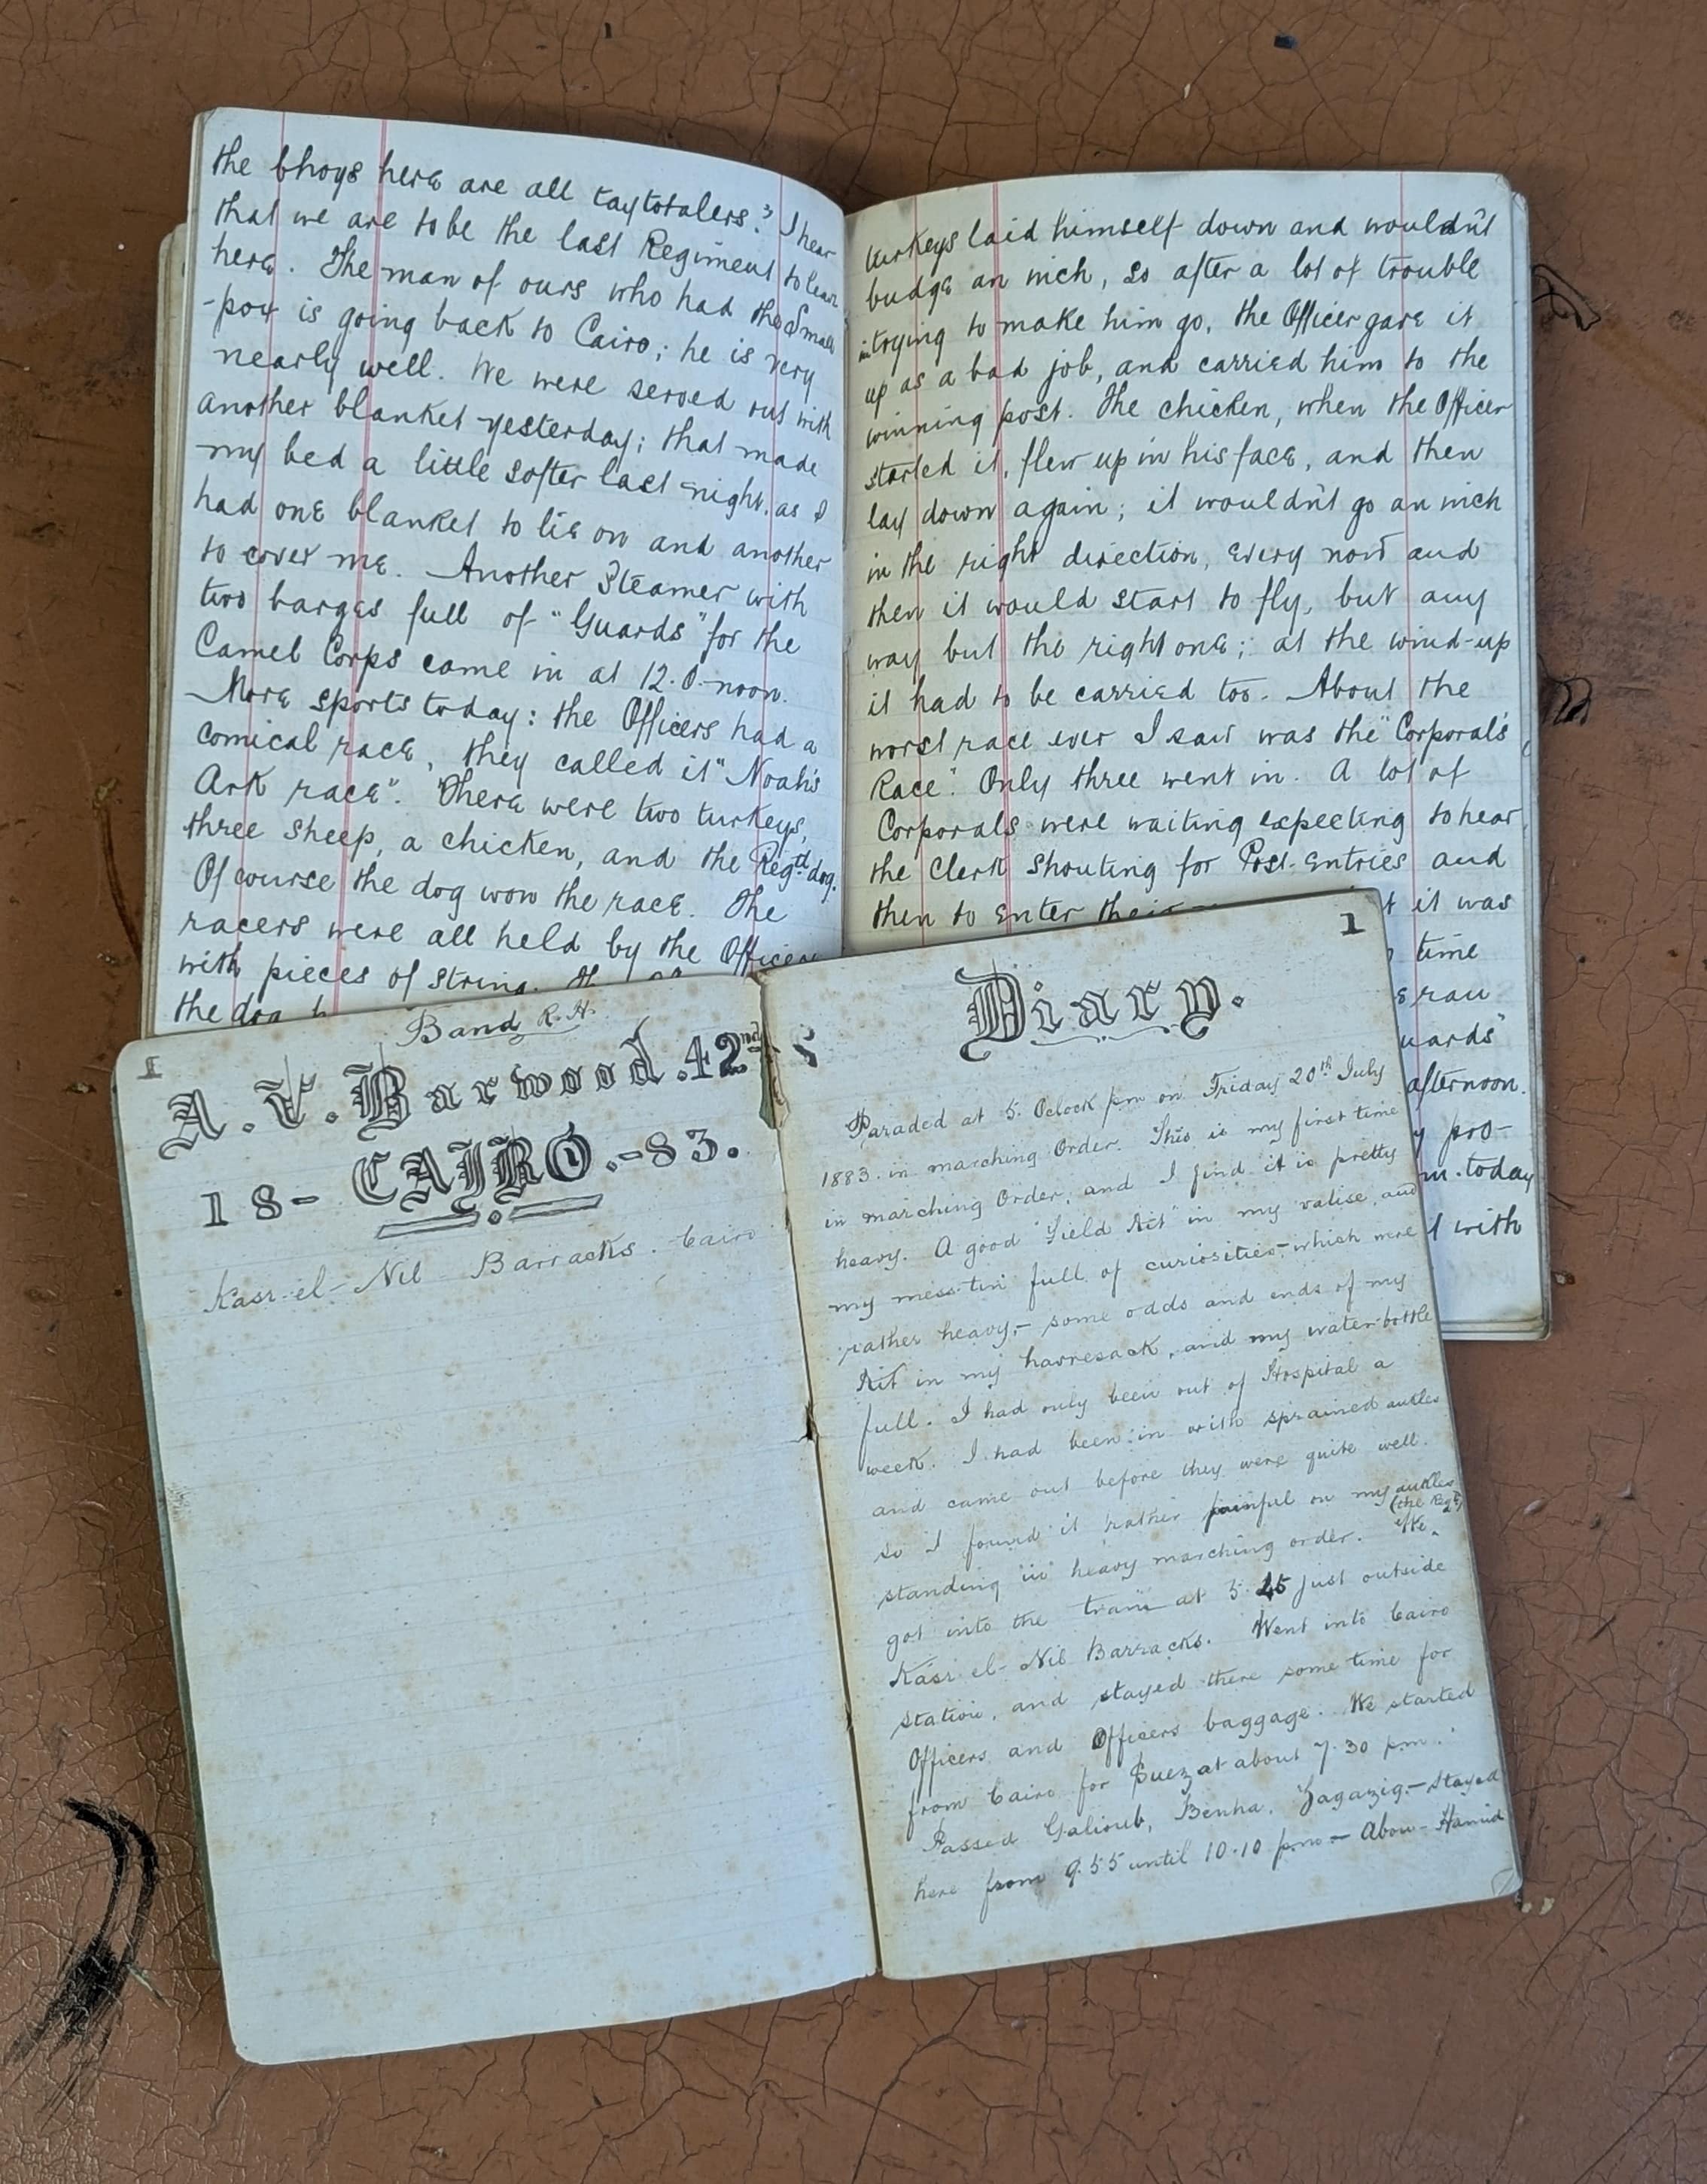 the bhoys here are all taytotalers." I hear
that we are to be the last Regiment to leave
here. The man of ours who had the Small
-pox is going back to Cairo; he is very
nearly well. We were served out with
another blanket yesterday; that made
my bed a little softer last night, as I
had one blanket to lie on and another
to cover me. Another Steamer with
two barges full of "Guards" for the
Camel Corps came in at 12.0 noon.
More sports today: the Officers had a
comical race, they called it "Noah's
Ark race". There were two turkeys,
three sheep, a chicken, and the Regtd dog.
Of course the dog won the race. The
racers were all held by the Officers
with pieces of string.
the dog
turkeys laid himself down and wouldn't
budge an inch, so after a lot of trouble
in trying to make him go, the Officer gave it
up as a bad job, and carried him to the
winning post. The chicken, when the Officer
started it, flew up in his face, and then
lay down again; it wouldn't go an inch
in the right direction, every now and
then it would start to fly, but any
way but the right one; at the wind-up
it had to be carried too. About the
worst race ever I saw was the "Corporal's
Race". Only three went in. A lot of
Corporals were waiting expecting to hear
the Clerk shouting for Post-Entries and
then to enter their it was
time
ran
uards"
afternoon.
pro-
today
with
1
Band R.H.
A.V. Barwood. 42nd
18- CAIRO.-83.
Kasr-el-Nil Barracks. Cairo
1
Diary.
Paraded at 5. Oclock pm on Friday 20th July
1883. in marching Order. This is my first time
in marching Order, and I find it is pretty
heavy. A good "Field Kit" in my valise, and
my mess-tin full of curiosities,- which were
rather heavy,- some odds and ends of my
Kit in my havresack, and my water-bottle
full. I had only been out of Hospital a
week. I had been in with sprained ankles
and came out before they were quite well.
so I found it rather painful on my ankles
standing in heavy marching order. We (the Regt)
got into the train at 5.45 just outside
Kasr-el-Nil Barracks. Went into Cairo
station, and stayed there some time for
Officers and Officers baggage. We started
from Cairo for Suez at about 7.30 pm.
Passed Galioub, Benha, Zagazig,- stayed
here from 9.55 until 10.10 pm.- Abou-Hamid